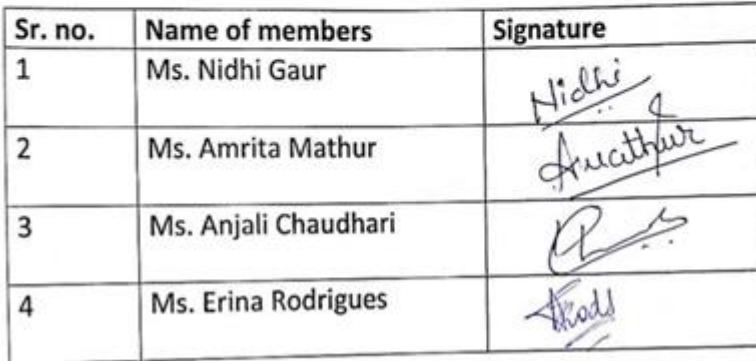 Sr. no. Name of members Signature
1 Ms. Nidhi Gaur Nidhi
2 Ms. Amrita Mathur Amathur
3 Ms. Anjali Chaudhari
4 Ms. Erina Rodrigues